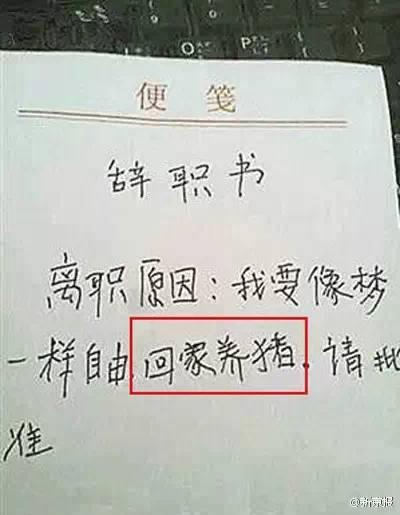 便笺
辞职书
离职原因：我要像梦
一样自由.回家养猪.请批
准
@新京报